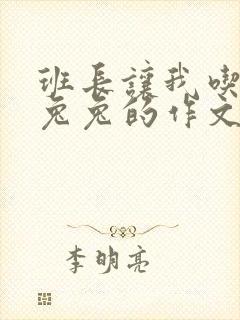 班长让我喫
兔兔的作文
李明亮